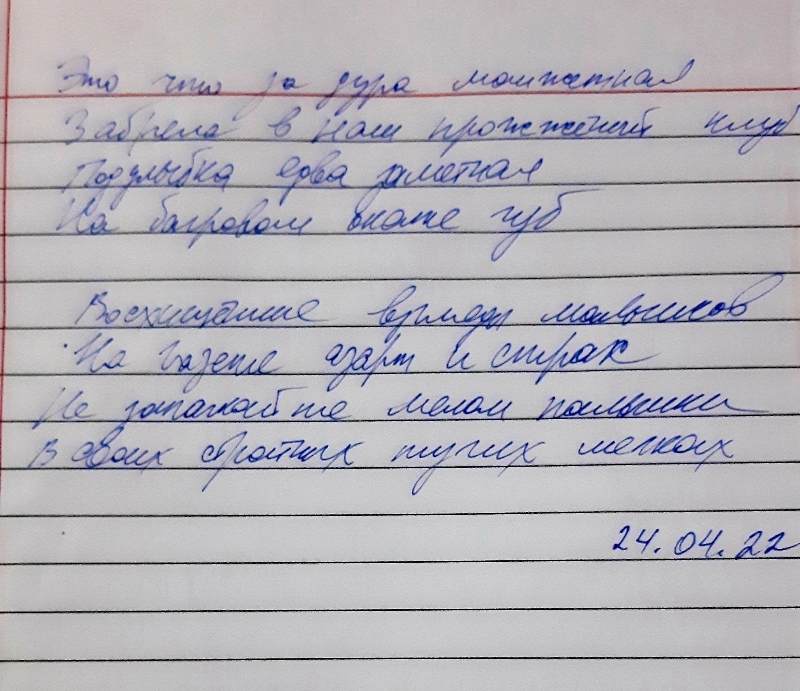 Это что за дура манжетная
Забрела в наш прожжёный клуб
Подулыбка едва заметная
На багровом окаже губ
Восхищенные взгляды мальчиков
На газете азарт и страх
Не запачкайте мелом пальчики
В своих стройных тугих мелках
24.04.22